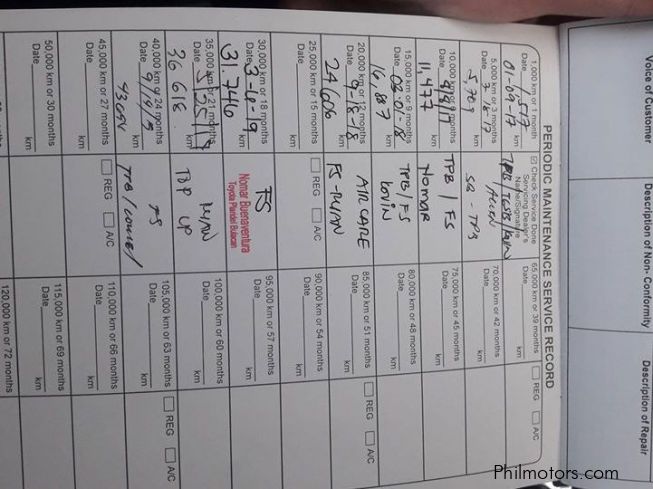 PERIODIC MAINTENANCE SERVICE RECORD
Check Service Done
Servicing Dealer's
Name/Signature
1,000 km or 1 month
Date 01-09-17 1,517 km
5,000 km or 3 months
Date 7-18-17 5,709 km
10,000 km or 6 months
Date 9/8/17 11,477 km
TPB / FS
Nomar
15,000 km or 9 months
Date 03-01-18 16,887 km
TPB/FS
KOVIN
20,000 km or 12 months
Date 9-18-18
24,606
AIR CARE
FS-RYAN
25,000 km or 15 months
Date km
REG A/C
30,000 km or 18 months
Date 3-4-19
31,746
FS
Nomar Buenaventura
Toyota Plaridel Bulacan
35,000 km or 21 months
Date
36 618
RYAN
40,000 km or 24 months
Date 9/19/19 km
FS
45,000 km or 27 months
Date km
REG A/C
50,000 km or 30 months
Date km
65,000 km or 39 months
Date km
REG A/C
70,000 km or 42 months
Date km
75,000 km or 45 months
Date km
80,000 km or 48 months
Date km
85,000 km or 51 months
Date km
REG A/C
90,000 km or 54 months
Date km
95,000 km or 57 months
Date km
100,000 km or 60 months
Date km
105,000 km or 63 months
Date km
REG A/C
110,000 km or 66 months
Date km
115,000 km or 69 months
Date km
120,000 km or 72 months
Voice of Customer
Description of Non- Conformity
Description of Repair
Philmotors.com